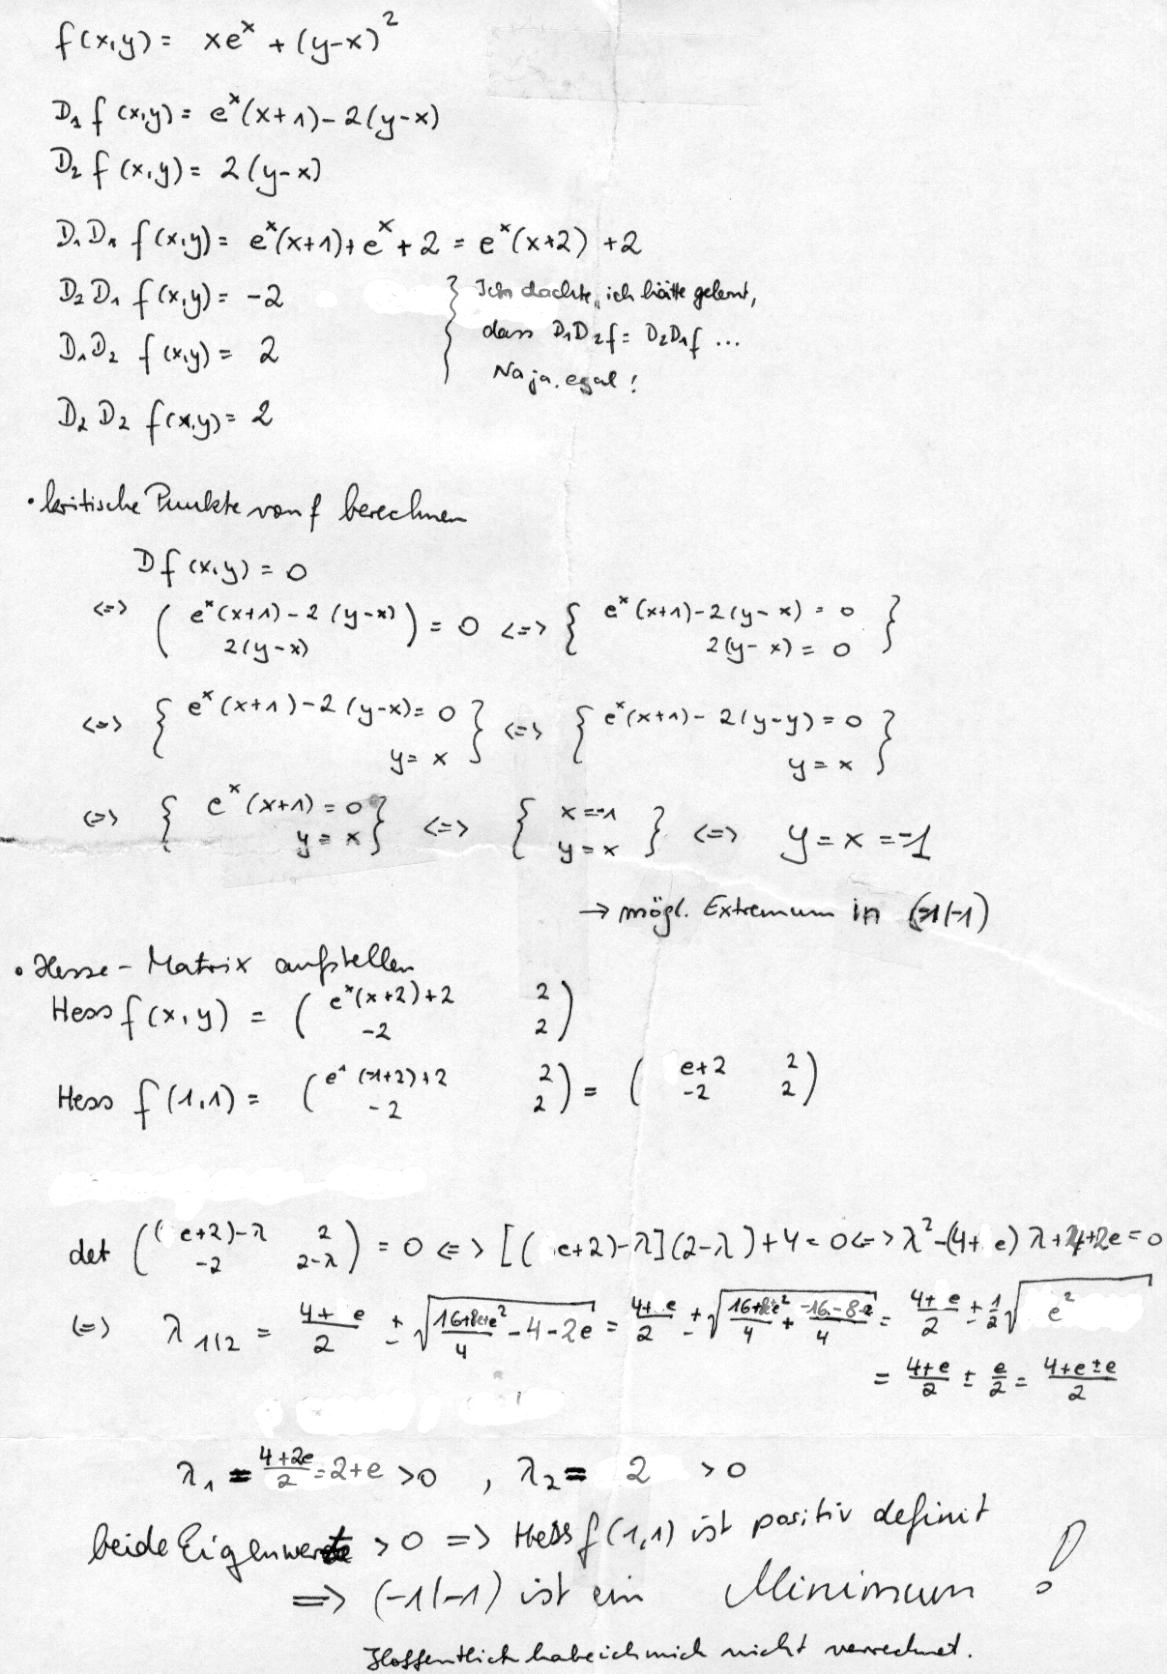 f(x,y) = xe^x + (y-x)^2
D₁ f (x,y) = e^x(x+1) - 2(y-x)
D₂ f (x,y) = 2(y-x)
D₁D₁ f(x,y) = e^x(x+1) + e^x + 2 = e^x(x+2) + 2
D₂D₁ f(x,y) = -2 } Ich dachte, ich hätte gelernt,
dass D₁D₂f = D₂D₁f ...
D₁D₂ f(x,y) = 2
Na ja, egal!
D₂D₂ f(x,y) = 2
• kritische Punkte von f berechnen
Df(x,y) = 0
<=> ( e^x(x+1) - 2(y-x) ; 2(y-x) ) = 0 <=> { e^x(x+1) - 2(y-x) = 0 ; 2(y-x) = 0 }
<=> { e^x(x+1) - 2(y-x) = 0 ; y = x } <=> { e^x(x+1) - 2(y-y) = 0 ; y = x }
<=> { e^x(x+1) = 0 ; y = x } <=> { x = -1 ; y = x } <=> y = x = -1
→ mögl. Extremum in (-1|-1)
• Hesse-Matrix aufstellen
Hess f(x,y) = ( e^x(x+2)+2 2 ; -2 2 )
Hess f(1,1) = ( e^1(-1+2)+2 2 ; -2 2 ) = ( e+2 2 ; -2 2 )
det ( (e+2)-λ 2 ; -2 2-λ ) = 0 <=> [(e+2)-λ](2-λ)+4 = 0 <=> λ^2-(4+e)λ+4+2e = 0
<=> λ 1|2 = (4+e)/2 ± √((16+8e+e^2)/4 - 4 - 2e) = (4+e)/2 ± √((16+8e+e^2)/4 + (-16-8e)/4) = (4+e)/2 ± 1/2 √(e^2)
= (4+e)/2 ± e/2 = (4+e±e)/2
λ₁ = (4+2e)/2 = 2+e > 0 , λ₂ = 2 > 0
beide Eigenwerte > 0 => Hess f(1,1) ist positiv definit
=> (-1|-1) ist ein Minimum !
Hoffentlich habe ich mich nicht verrechnet.